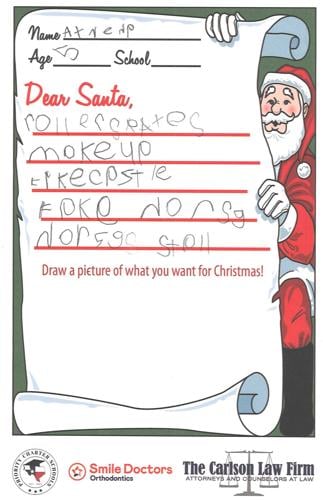 Name Axnenp
Age 5 School
Dear Santa,
rollersrates
makeup
Epkecpstle
Epke horsg
horsgs stall
Draw a picture of what you want for Christmas!
PRIORITY CHARTER SCHOOLS
Smile Doctors
Orthodontics
The Carlson Law Firm
ATTORNEYS AND COUNSELORS AT LAW